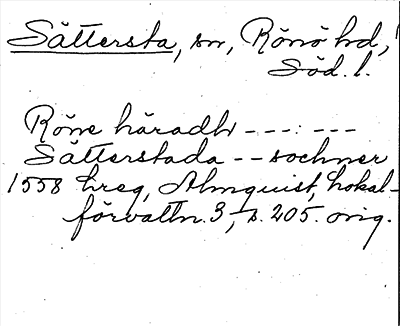 Sättersta, sn, Rönö hd,
Söd. l.
Röne häradh ---:---
Sätterstada -- sochner
1558 hreg, Almquist, Lokal-
förvaltn. 3, s. 205. orig.